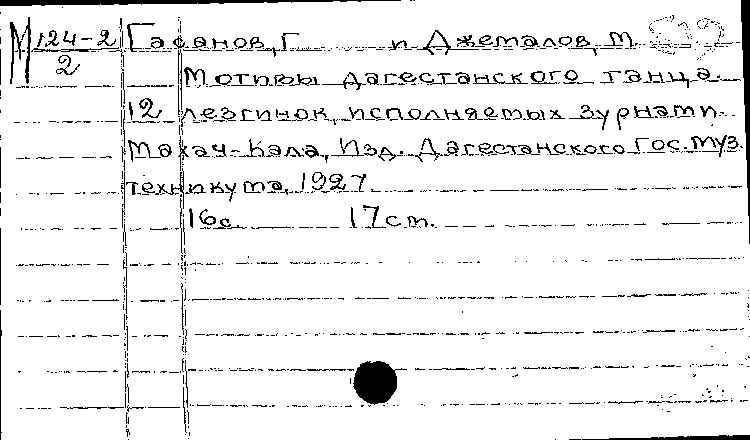 М 124-2 Гасанов, Г. и Джемалов, М.
2 Мотивы дагестанского танца.
12 лезгинок, исполняемых зурнами.
Махач-Кала, Изд. Дагестанского Гос. муз.
техникума, 1927.
16с. 17см.